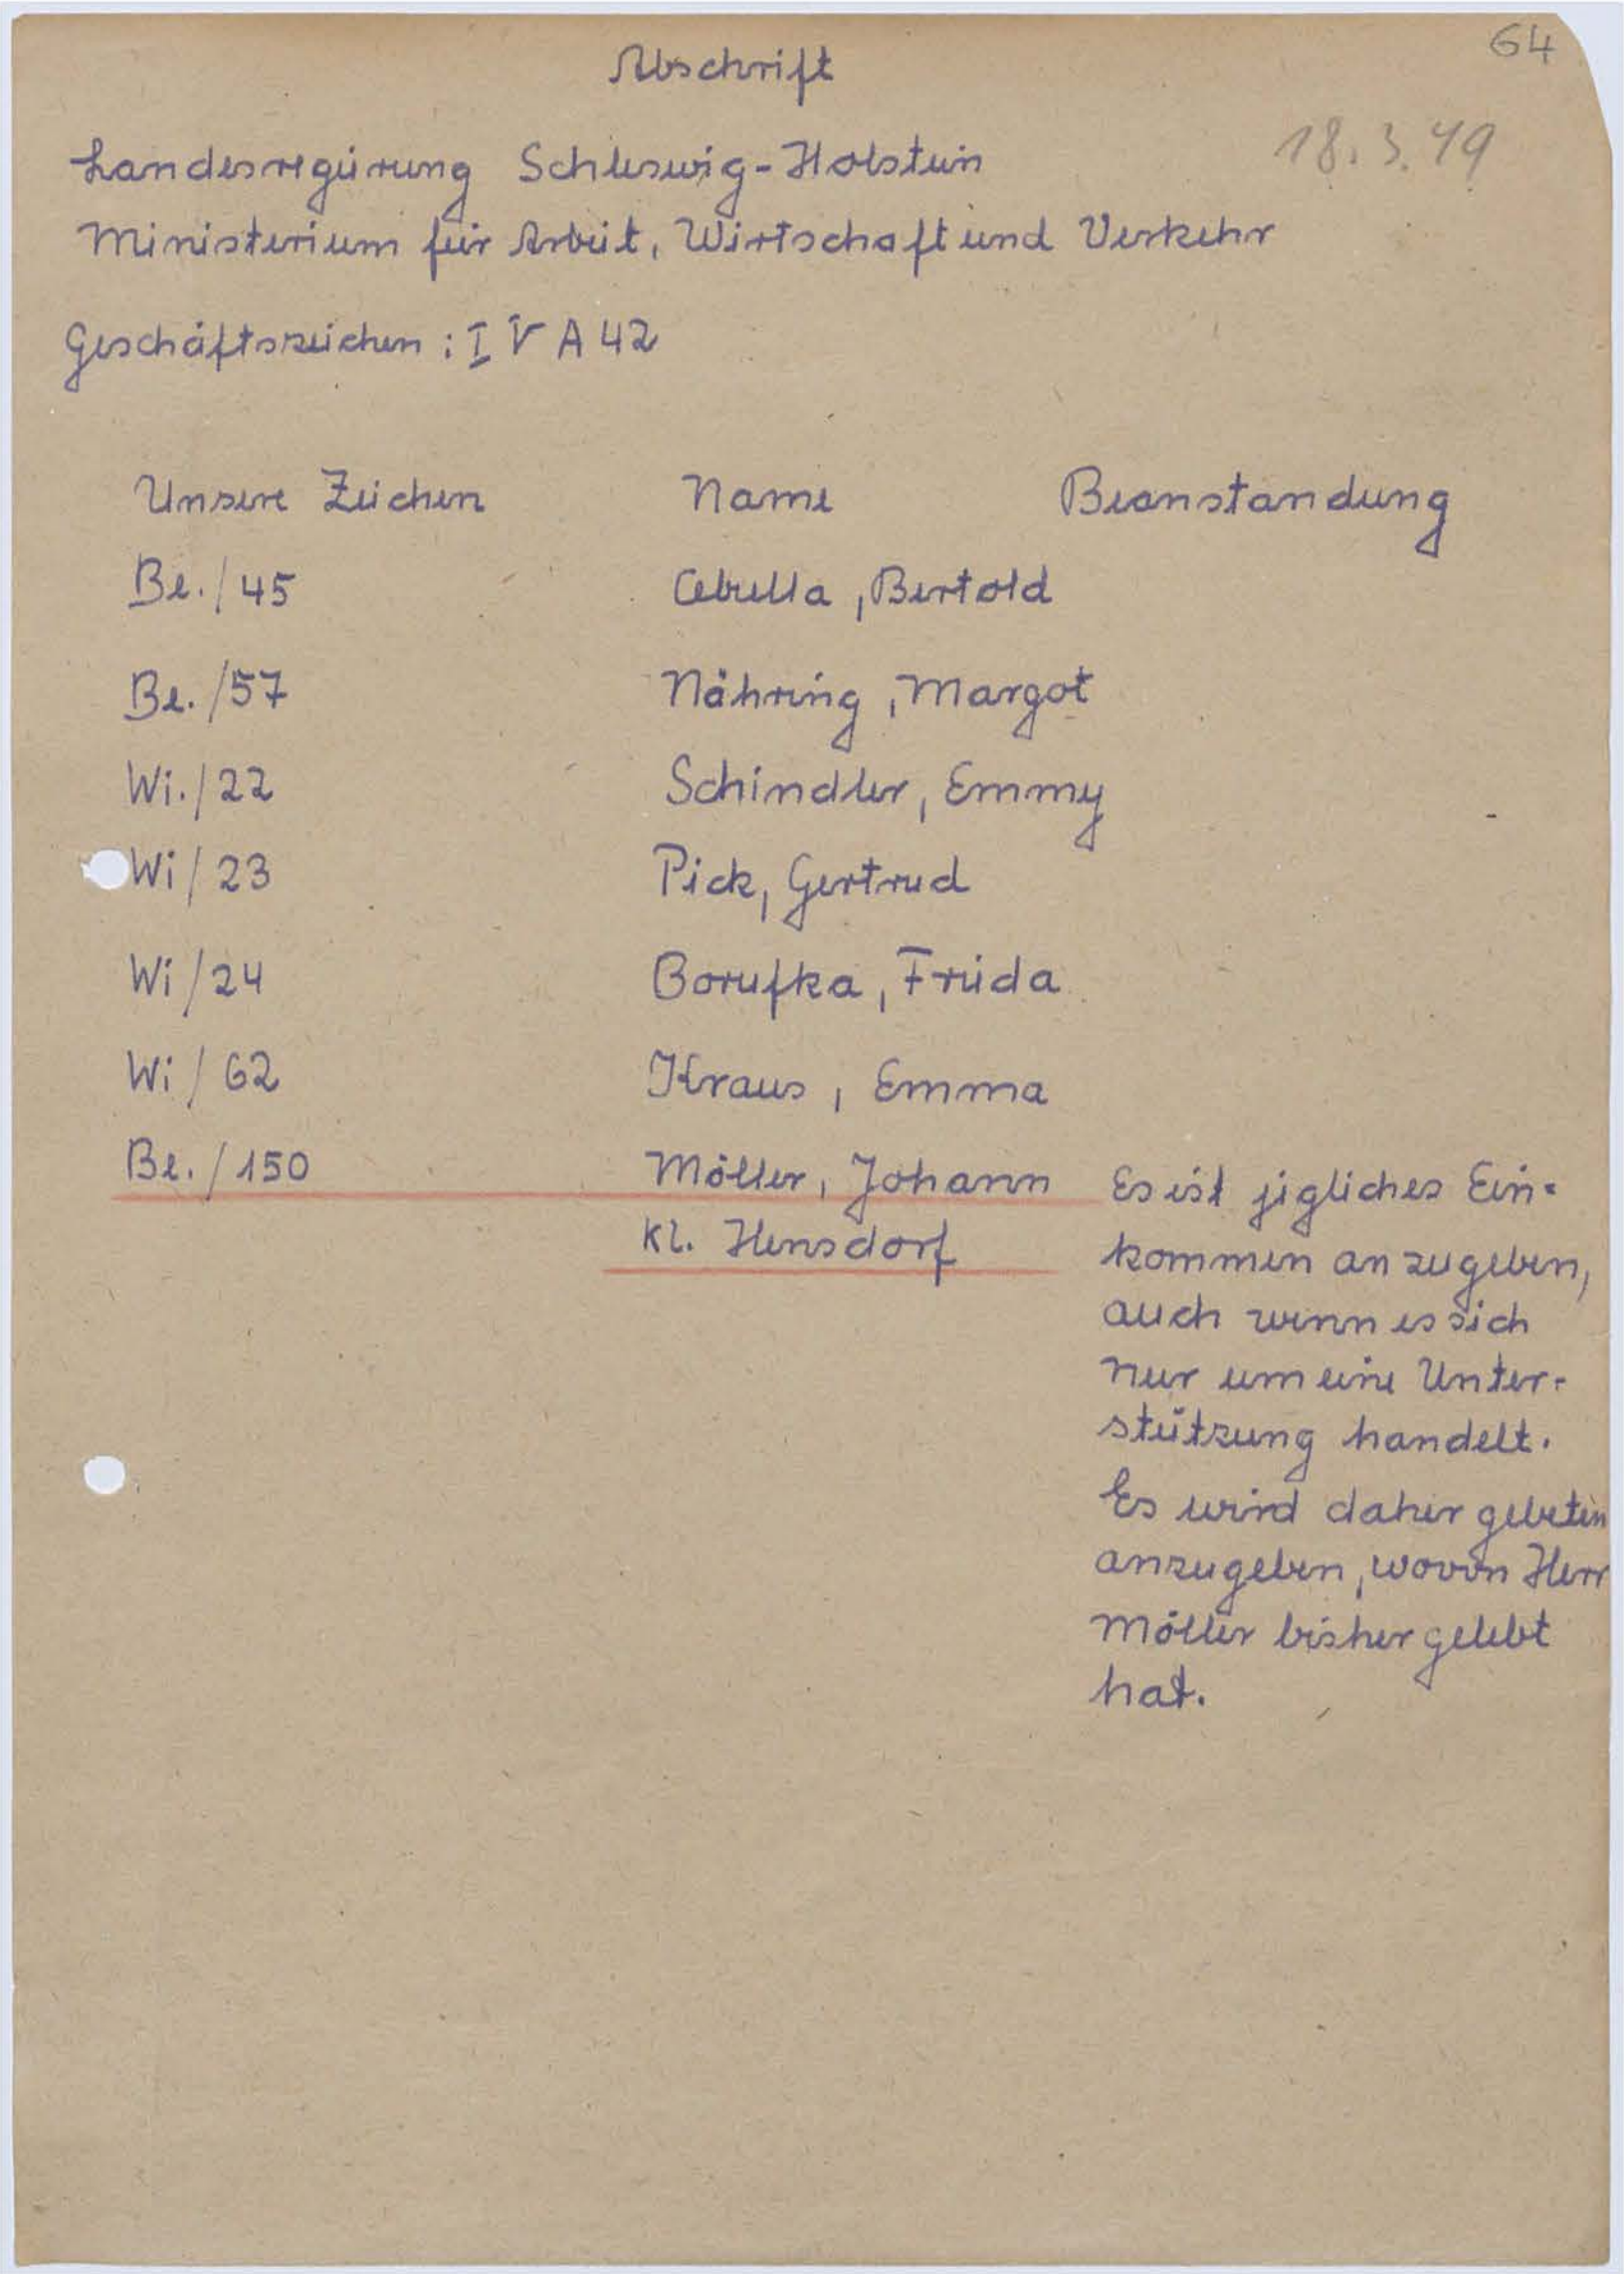 64
Abschrift
18.3.49
Landesregierung Schleswig-Holstein
Ministerium für Arbeit, Wirtschaft und Verkehr
Geschäftszeichen: IV A 42
Unsere Zeichen Name Beanstandung
Be./45 Cebulla, Bertold
Be./57 Nähring, Margot
Wi./22 Schindler, Emmy
Wi/23 Pick, Gertrud
Wi/24 Borufka, Frieda
Wi/62 Kraus, Emma
Be./150 Möller, Johann Es ist jegliches Ein-
Kl. Hensdorf kommen anzugeben,
auch wenn es sich
nur um eine Unter-
stützung handelt.
Es wird daher gebeten
anzugeben, wovon Herr
Möller bisher gelebt
hat.